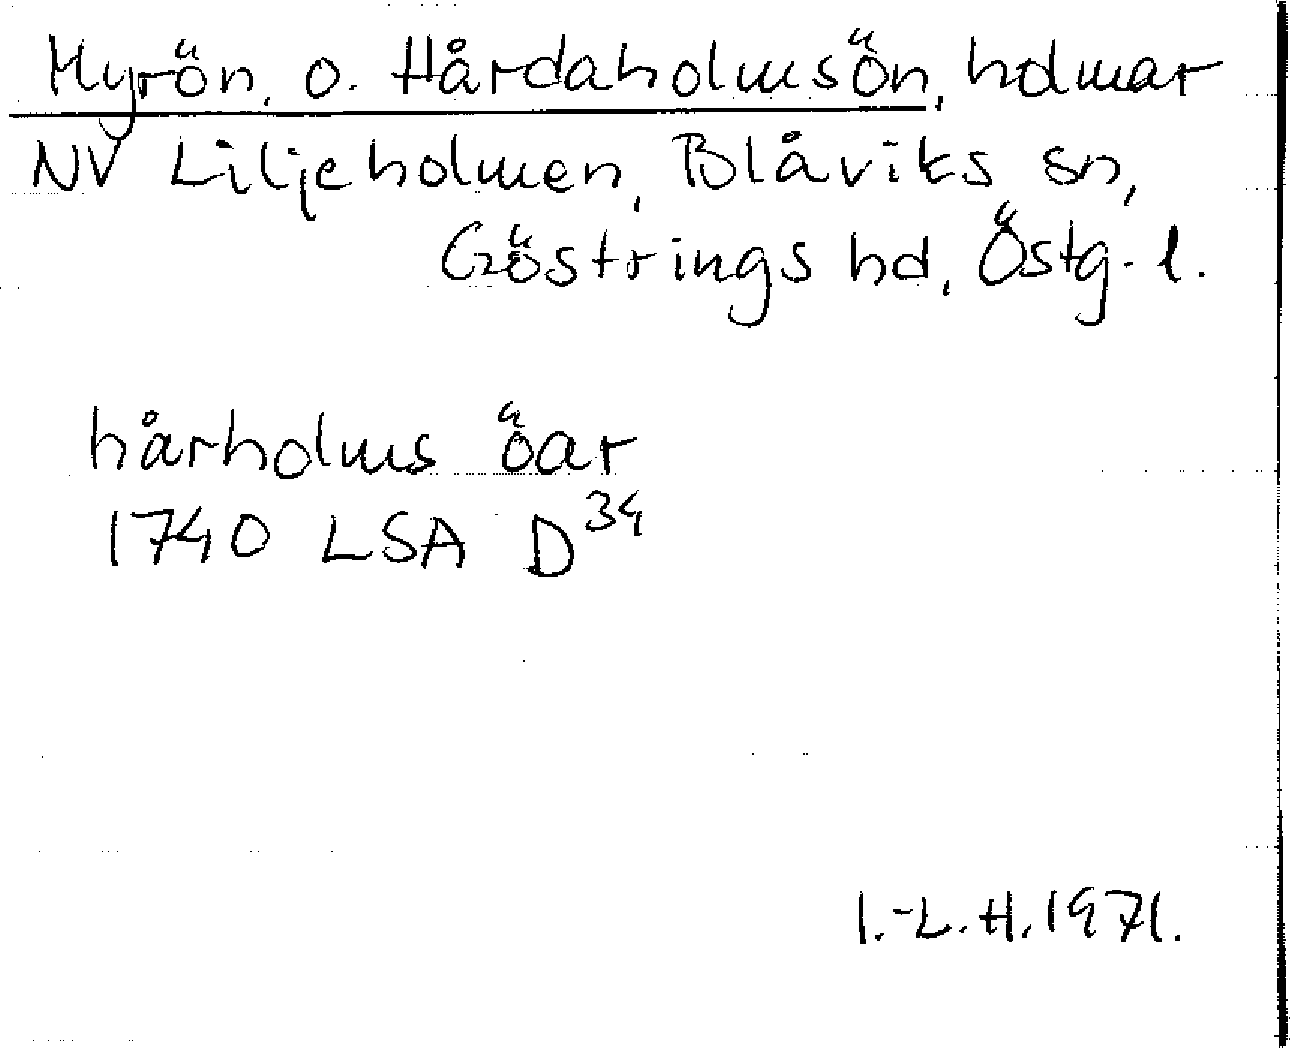 Myrön, o. Hårdaholmsön, holmar
NV Liljeholmen, Blåviks sn,
Göstrings hd, Östg. l.
hårholms öar
1740 LSA D34
I.-L. H. 1971.